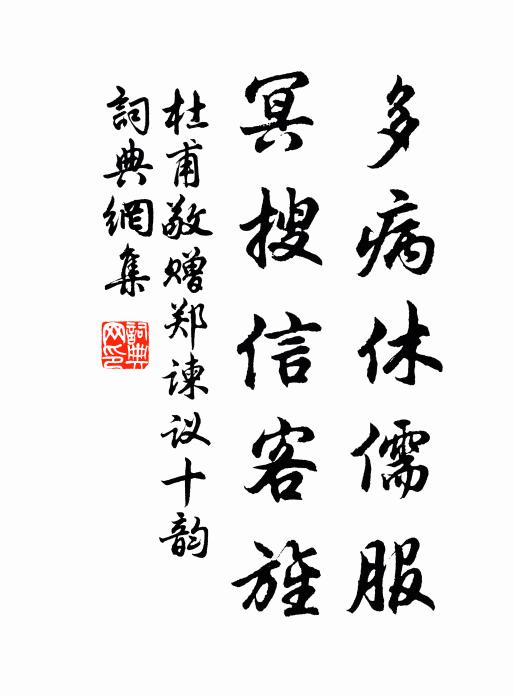 多病休儒服
冥搜信客旌
杜甫敬赠郑谏议十韵
詞典網集
詞典
网印